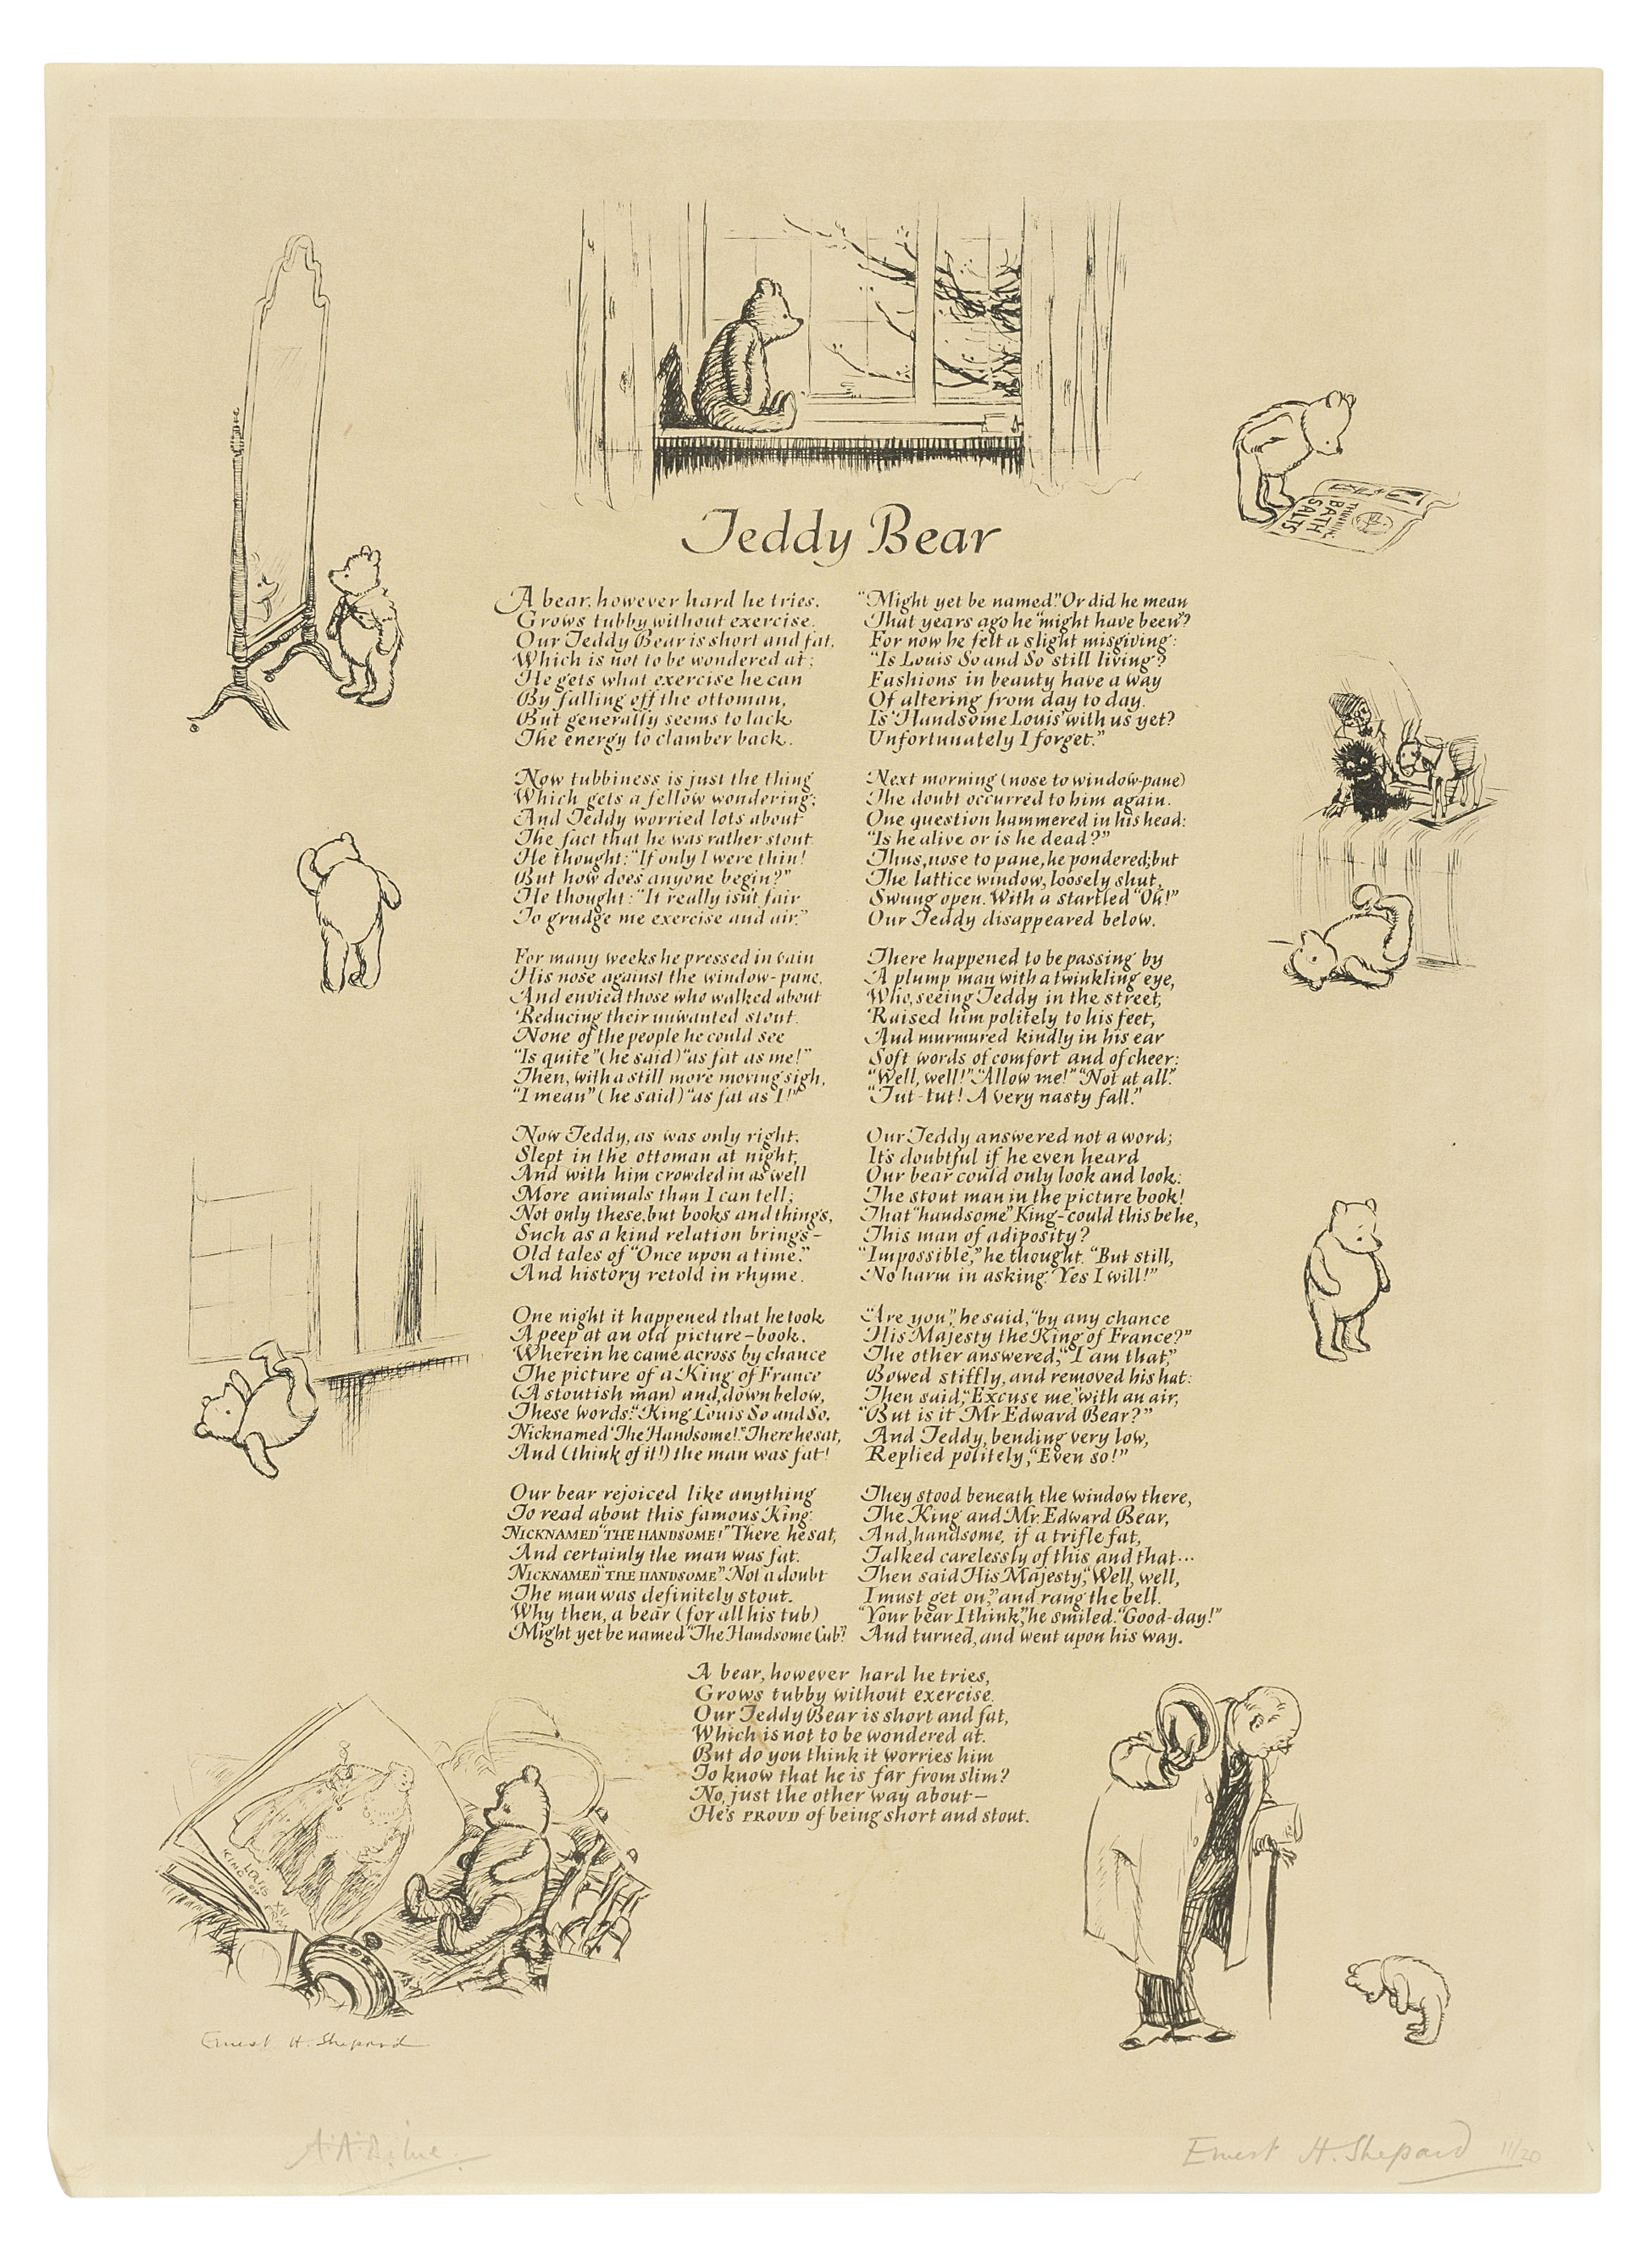 THINNING
BATH
SALTS
Teddy Bear
A bear, however hard he tries,
Grows tubby without exercise.
Our Teddy Bear is short and fat,
Which is not to be wondered at;
He gets what exercise he can
By falling off the ottoman,
But generally seems to lack
The energy to clamber back.
Now tubbiness is just the thing
Which gets a fellow wondering;
And Teddy worried lots about
The fact that he was rather stout.
He thought: "If only I were thin!
But how does anyone begin?"
He thought: "It really isn't fair
To grudge me exercise and air."
For many weeks he pressed in vain
His nose against the window-pane,
And envied those who walked about
Reducing their unwanted stout.
None of the people he could see
"Is quite" (he said) "as fat as me!"
Then, with a still more moving sigh,
"I mean" (he said) "as fat as I!"
Now Teddy, as was only right,
Slept in the ottoman at night,
And with him crowded in as well
More animals than I can tell;
Not only these, but books and things,
Such as a kind relation brings–
Old tales of "Once upon a time,"
And history retold in rhyme.
One night it happened that he took
A peep at an old picture-book,
Wherein he came across by chance
The picture of a King of France
(A stoutish man) and, down below,
These words: "King Louis So and So,
Nicknamed 'The Handsome!'" There he sat,
And (think of it!) the man was fat!
Our bear rejoiced like anything
To read about this famous King.
NICKNAMED "THE HANDSOME!" There he sat,
And certainly the man was fat.
NICKNAMED "THE HANDSOME." Not a doubt
The man was definitely stout.
Why then, a bear (for all his tub)
Might yet be named "The Handsome Cub"!
"Might yet be named." Or did he mean
That years ago he "might have been"?
For now he felt a slight misgiving:
"Is Louis So and So still living?
Fashions in beauty have a way
Of altering from day to day.
Is 'Handsome Louis' with us yet?
Unfortunately I forget."
Next morning (nose to window-pane)
The doubt occurred to him again.
One question hammered in his head:
"Is he alive or is he dead?"
Thus, nose to pane, he pondered; but
The lattice window, loosely shut,
Swung open. With a startled "Oh!"
Our Teddy disappeared below.
There happened to be passing by
A plump man with a twinkling eye,
Who, seeing Teddy in the street,
Raised him politely to his feet,
And murmured kindly in his ear
Soft words of comfort and of cheer:
"Well, well!" "Allow me!" "Not at all."
"Tut-tut! A very nasty fall."
Our Teddy answered not a word;
It's doubtful if he even heard.
Our bear could only look and look:
The stout man in the picture book!
That "handsome" King–could this be he,
This man of adiposity?
"Impossible," he thought. "But still,
No harm in asking. Yes I will!"
"Are you," he said, "by any chance
His Majesty the King of France?"
The other answered, "I am that,"
Bowed stiffly, and removed his hat:
Then said, "Excuse me," with an air,
"But is it Mr Edward Bear?"
And Teddy, bending very low,
Replied politely, "Even so!"
They stood beneath the window there,
The King and Mr. Edward Bear,
And, handsome, if a trifle fat,
Talked carelessly of this and that...
Then said His Majesty, "Well, well,
I must get on," and rang the bell.
"Your bear I think," he smiled. "Good-day!"
And turned, and went upon his way.
A bear, however hard he tries,
Grows tubby without exercise.
Our Teddy Bear is short and fat,
Which is not to be wondered at.
But do you think it worries him
To know that he is far from slim?
No, just the other way about–
He's PROUD of being short and stout.
LOUIS XV
KING OF
Ernest H. Shepard
A.A. Milne.
Ernest H. Shepard 11/20